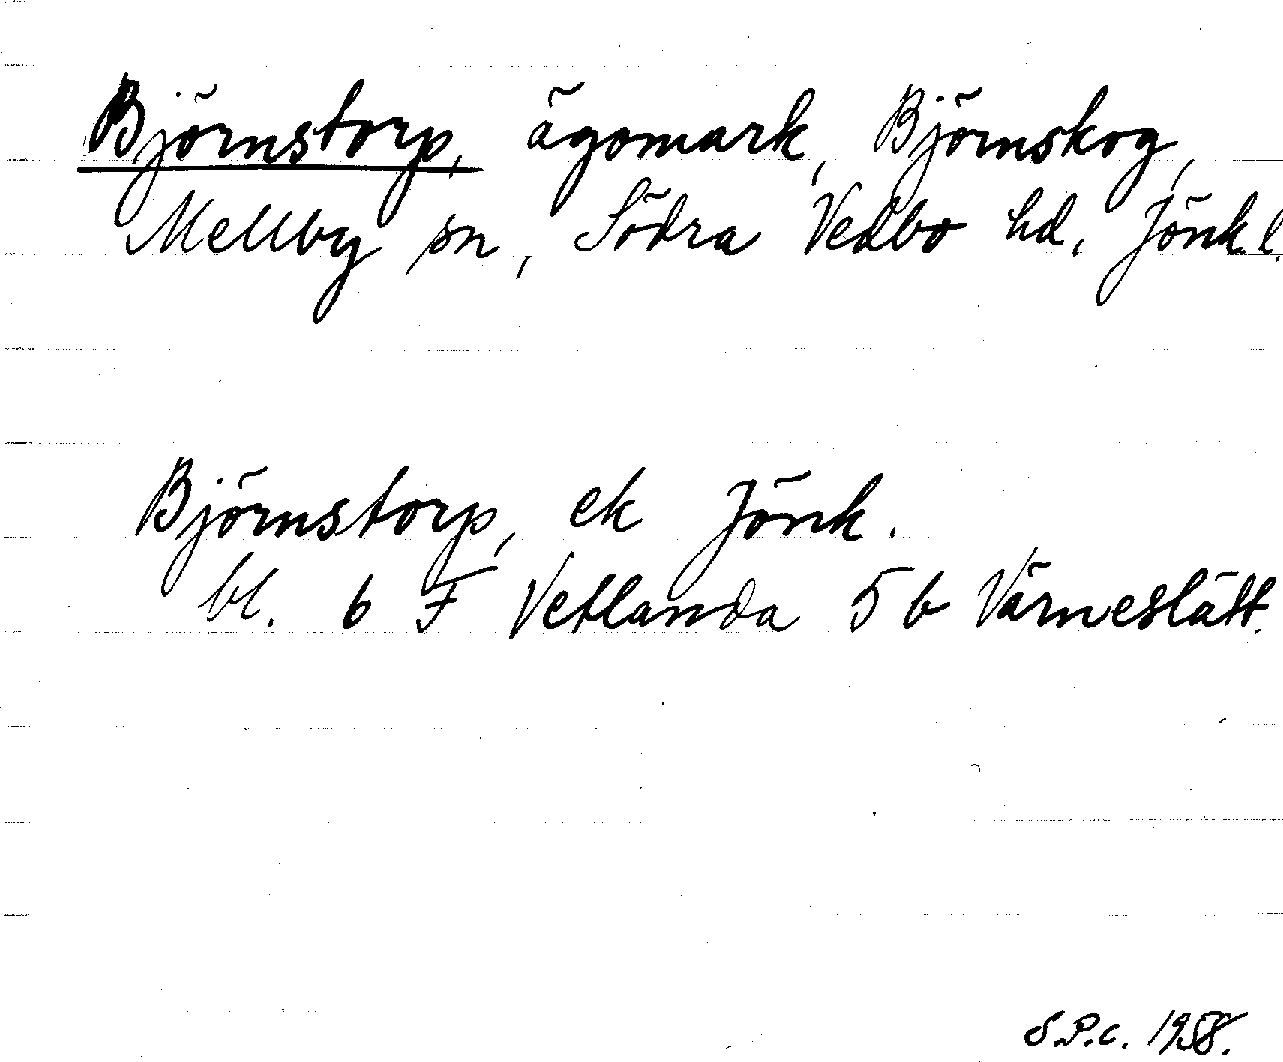 Björnstorp, ägomark, Björnskog,
Mellby sn, Södra Vedbo hd, Jönk.l.
Björnstorp, ek Jönk.
bl. 6 F Vetlanda 5 b Värneslätt.
S.P.C. 1958.